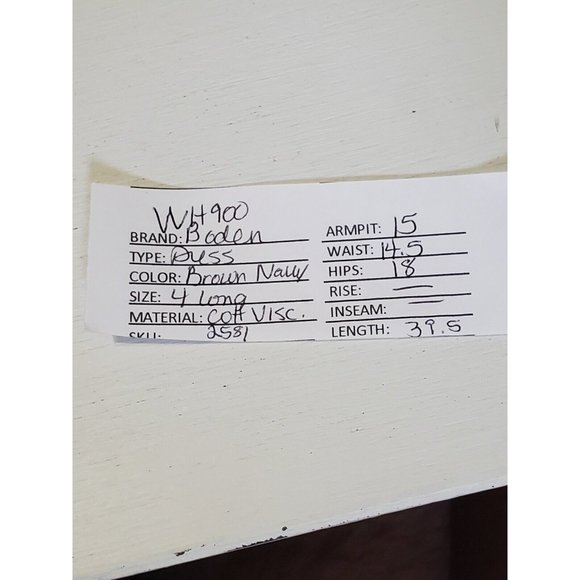 WH900
BRAND: Boden
TYPE: Dress
COLOR: Brown Navy
SIZE: 4 Long
MATERIAL: Cott Visc.
SKU: 2581
ARMPIT: 15
WAIST: 14.5
HIPS: 18
RISE: —
INSEAM: —
LENGTH: 39.5